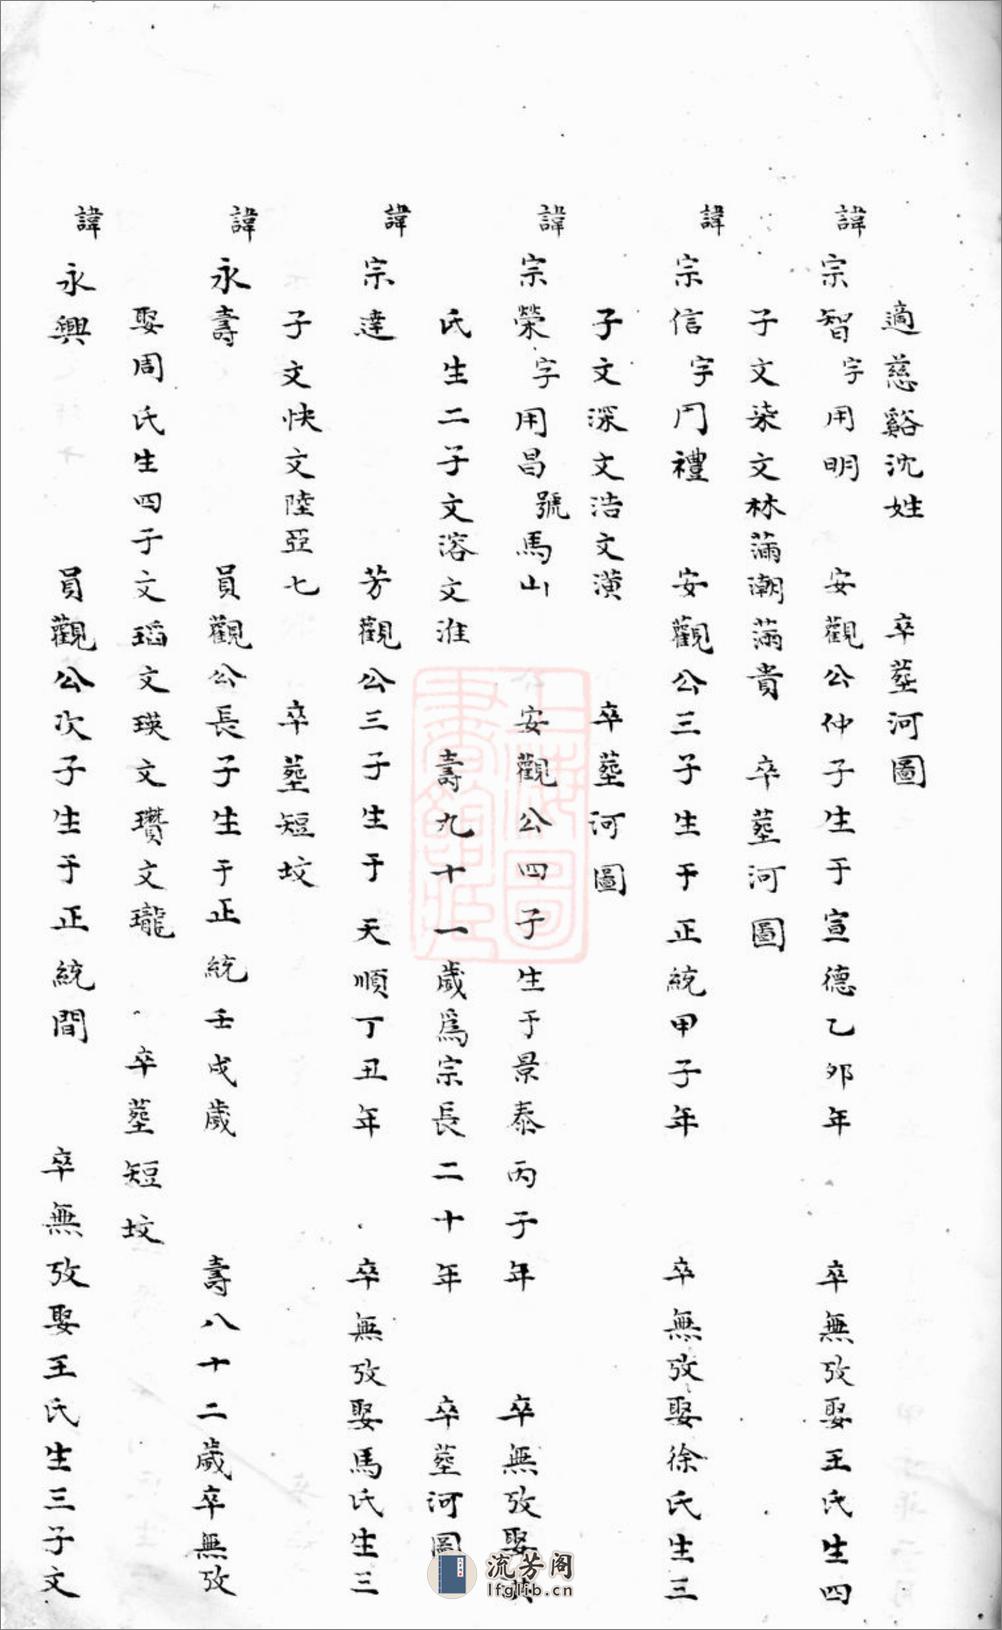 適慈谿沈姓　卒墓河圖
諱宗智字用明　安觀公仲子生于宣德乙卯年　卒無攷娶王氏生四
子文柒文林滿潮滿貴　卒墓河圖
諱宗信字門禮　安觀公三子生于正統甲子年　卒無攷娶徐氏生三
子文深文浩文潢　卒墓河圖
諱宗榮字用昌號馬山　安觀公四子生于景泰丙子年　卒無攷娶
氏生二子文溶文淮　壽九十一歲爲宗長二十年　卒墓河圖
諱宗達　芳觀公三子生于天順丁丑年　卒無攷娶馬氏生三
子文快文陸亞七　卒墓短坟
諱永壽　員觀公長子生于正統壬戌歲　壽八十二歲卒無攷
娶周氏生四子文瑫文瑛文瓚文瓏　卒墓短坟
諱永興　員觀公次子生于正統間　卒無攷娶王氏生三子文
上海圖書館藏
流芳阁
lfglib.cn